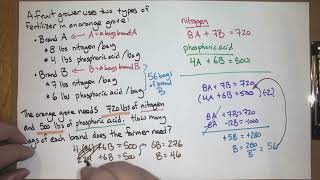 A fruit grower uses two types of
fertilizer in an orange grove:
• Brand A ← A = # bags brand A
* 8 lbs nitrogen / bag
* 4 lbs phosphoric acid / bag
• Brand B ← B = # bags brand B
* 7 lbs nitrogen / bag
* 6 lbs phosphoric acid / bag
56 bags
of brand
B
The orange grove needs 720 lbs of nitrogen
and 500 lbs of phosphoric acid. How many
bags of each brand does the farmer need?
+6B = 500
+6B = 500
6B = 276
B = 46
nitrogen
8A + 7B = 720
phosphoric acid
4A + 6B = 500
8A + 7B = 720
(4A + 6B = 500)(-2)
8A + 7B = 720
-8A - 12B = -1000
+5B = +280
B = 280/5 = 56